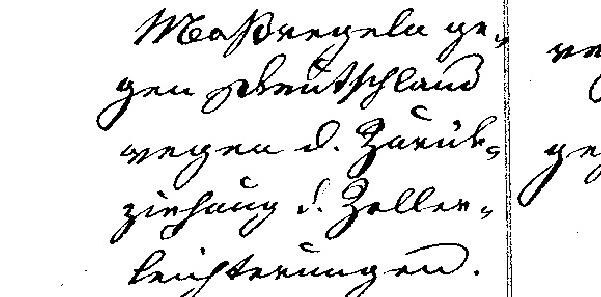 Maßregeln ge-
gen Deutschland
wegen d. Zurük-
ziehung d. Zoller-
leichterungen.